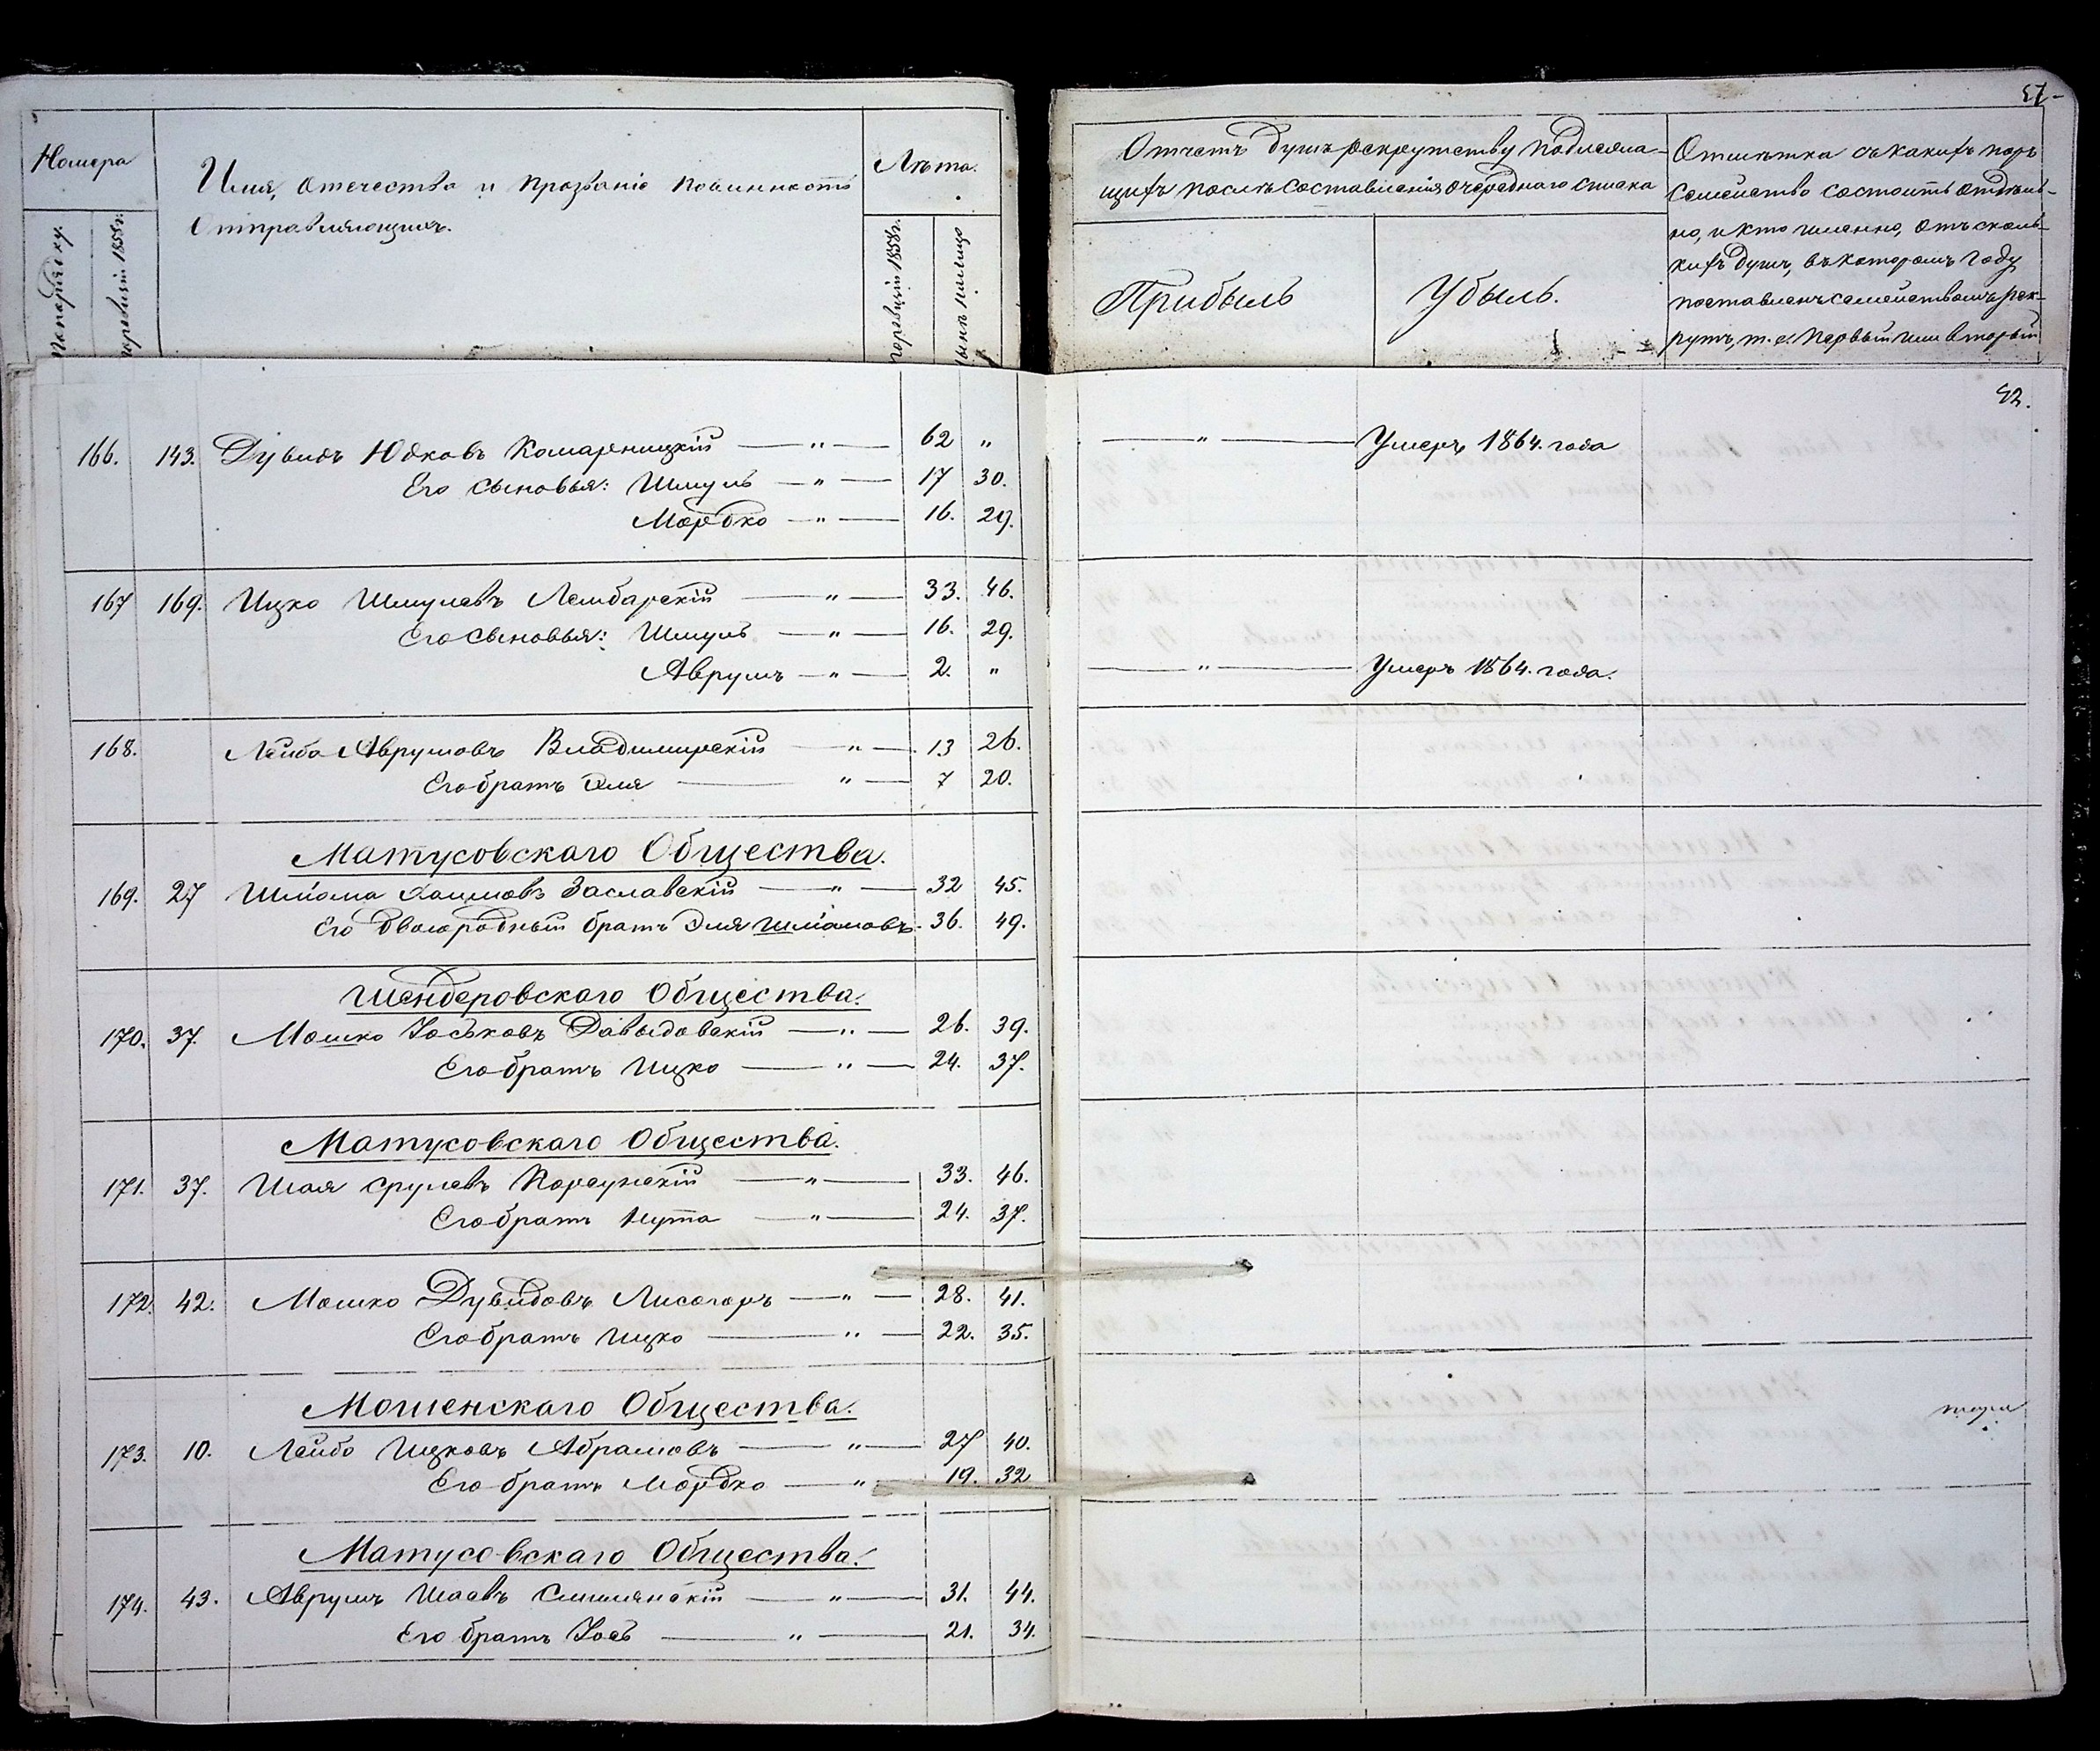 57
Номера
Имя, отечество и прозваніе повинность
отправляющихъ.
Лѣта.
по порядку.
по ревизіи 1858 г.
по ревизіи 1858 г.
нынѣ имѣющ
Отчетъ душъ рекрутству подлежа-
щихъ послѣ составленія очереднаго списка
Прибыль
Убыль.
Отмѣтка съ какихъ поръ
семейство состоитъ отдѣль-
но, и кто именно, отъ сколь-
кихъ душъ, въ которомъ году
поставленъ семействомъ рек-
рутъ, т. е. первый или второй
42.
166. 143. Дувидъ Юдковъ Комарницкій — „ — 62 „ — „ — Умеръ 1864. года
Его сыновья: Шмуль — „ — 17 30.
Мордко — „ — 16. 29.
167 169. Ицко Шмулевъ Лембарскій — „ — 33. 46.
Его сыновья: Шмуль — „ — 16. 29.
Аврумъ — „ — 2. „ — „ — Умеръ 1864. года.
168. Лейба Аврумовъ Владимирскій — „ — 13 26.
Его братъ Эля — „ — 7 20.
Матусовскаго Общества.
169. 27 Шліома Хаимовъ Заславскій — „ — 32 45.
Его двоюродный братъ Эля Шліомовъ. 36. 49.
Шендеровскаго Общества.
170. 37. Мошко Іоськовъ Давыдовскій — „ — 26. 39.
Его братъ Ицко — „ — 24. 37.
Матусовскаго Общества.
171. 37. Шая Срулевъ Корсунскій — „ — 33. 46.
Его братъ Нута — „ — 24. 37.
172. 42. Мошко Дувидовъ Лисогоръ — „ — 28. 41.
Его братъ Ицко — „ — 22. 35.
Мошенскаго Общества.
173. 10. Лейбо Ицковъ Абрамовъ — „ — 27 40.
Его братъ Мордко — „ — 19. 32
Матусовскаго Общества.
174. 43. Аврумъ Шаевъ Смилянскій — „ — 31. 44.
Его братъ Іось — „ — 21. 34.